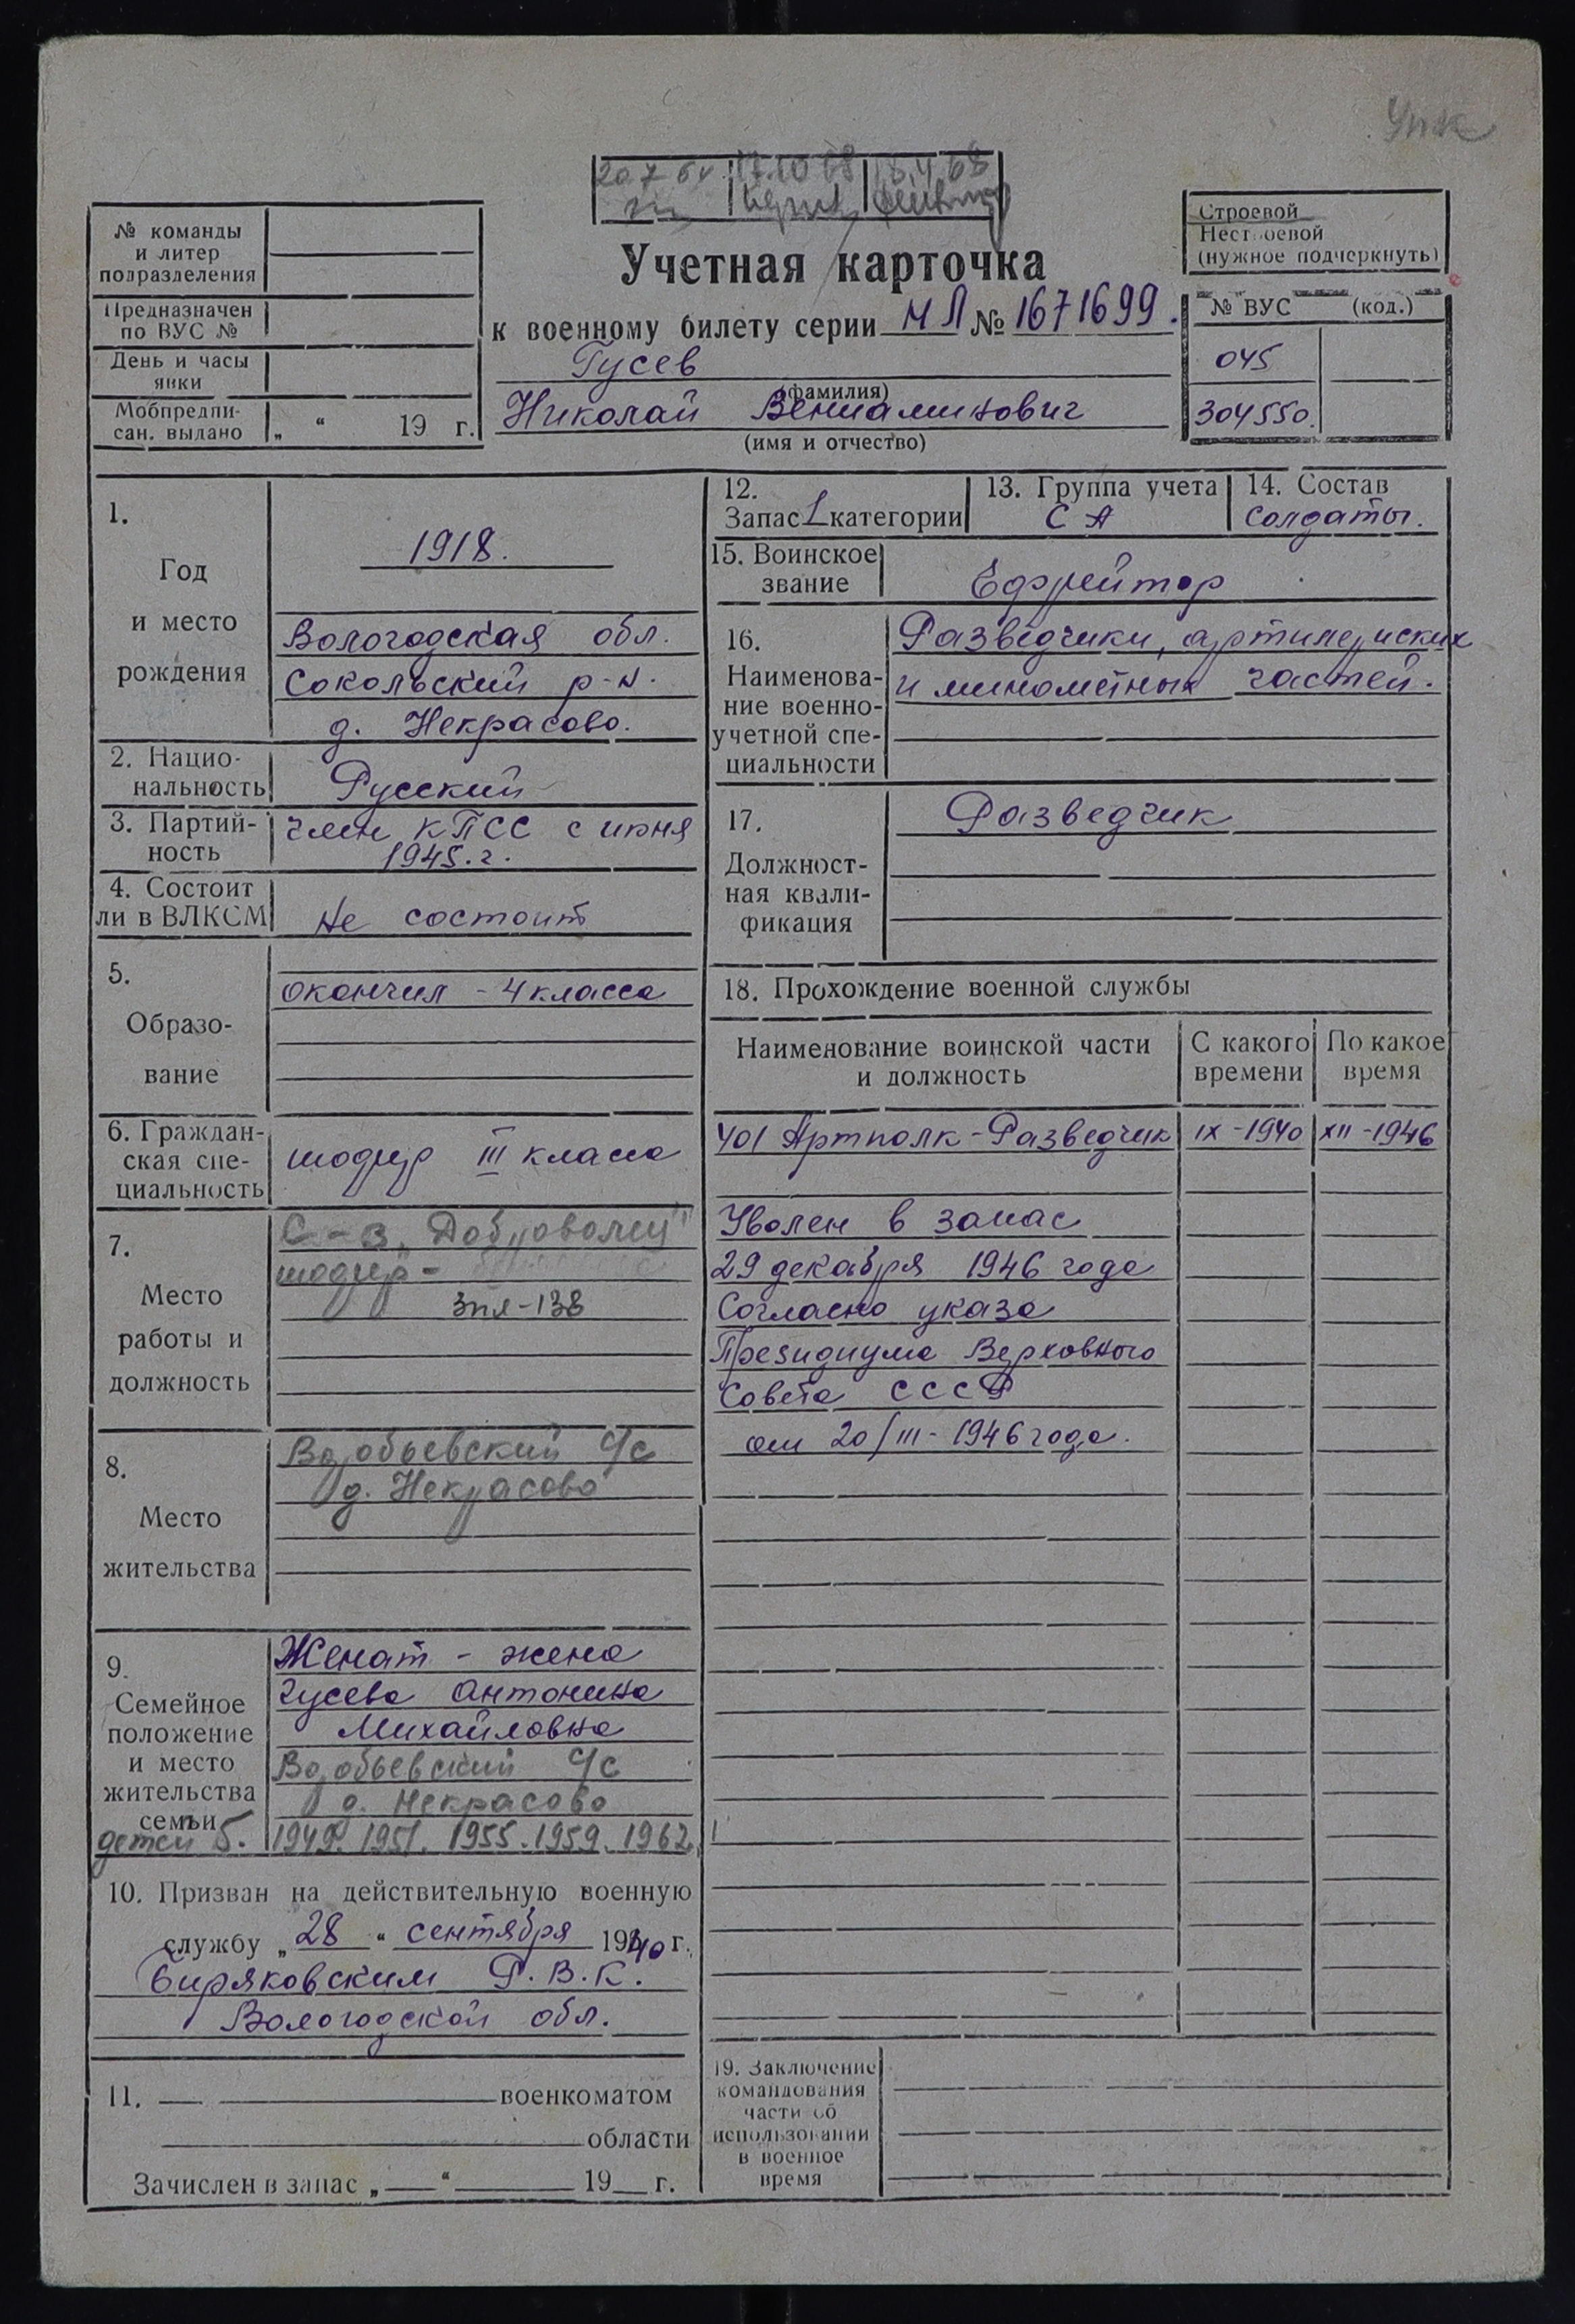 Упк
20 7 64 17.10 68 18.4.68
Строевой
Нестроевой
(нужное подчеркнуть)
№ команды
и литер
подразделения
Предназначен
по ВУС №
День и часы
явки
Мобпредпи-
сан. выдано „ “ 19 г.
Учетная карточка
к военному билету серии НЛ № 1671699.
Гусев
(фамилия)
Николай Вениаминович
(имя и отчество)
№ ВУС (код.)
045
304550.
1.
Год
и место
рождения
1918.
Вологодская обл.
Сокольский р-н.
д. Некрасово.
2. Нацио-
нальность
Русский
3. Партий-
ность
член КПСС с июня
1945.г.
4. Состоит
ли в ВЛКСМ
не состоит
5.
Образо-
вание
окончил - 4 класса
6. Граждан-
ская спе-
циальность
шофер III класса
7.
Место
работы и
должность
С-з „Доброволец"
шофер -
зпя-138
8.
Место
жительства
Воробьевский с/с
д. Некрасово
9.
Семейное
положение
и место
жительства
семьи
Женат - жена
гусева Антонина
Михайловна
Воробьевский с/с
д. Некрасово
детей 5. 1949. 1951. 1955. 1959. 1962
10. Призван на действительную военную
службу „28“ сентября 1940 г.
Биряковским Р.В.К.
Вологодской обл.
11. военкоматом
области
Зачислен в запас „ “ 19 г.
12.
Запас 1 категории
13. Группа учета
СА
14. Состав
солдаты.
15. Воинское
звание
Ефрейтор
16.
Наименова-
ние военно-
учетной спе-
циальности
Разведчики, артилериских
и минометных частей.
17.
Должност-
ная квали-
фикация
Разведчик
18. Прохождение военной службы
Наименование воинской части
и должность
С какого
времени
По какое
время
401 Артполк - Разведчик IX - 1940 XII - 1946
Уволен в запас
29 декабря 1946 года
Согласно указа
Президиума Верховного
Совета СССР
от 20/III - 1946 года.
19. Заключение
командования
части об
использовании
в военное
время